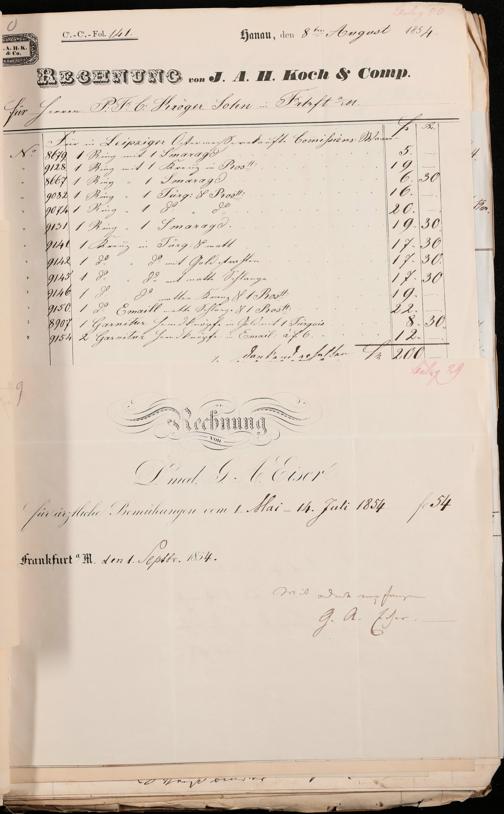 C.-C.-Fol. 141.
Hanau, den 8ten August 1854.
J. A. H. K. & Co.
RECHNUNG von J. A. H. Koch & Comp.
für Herrn P. F. C. Kröger Sohn in Frkft a/M.
Leipziger
No. 8679 1 Ring mit 1 Smaragd 5.
9128 1 Ring mit 1 19.
8667 1 Ring " 1 Smaragd 6. 30
9032 1 Ring " 1 Türq. & 16.
9074 1 Ring " 1 do do 20.
9131 1 Ring " 1 Smaragd 19. 30
9141 1 Kreuz in Türq. & matt 17. 30
9142 1 do do mit Gold 17. 30
9143 1 do do mit matte Schlange 17. 30
9146 1 do 19.
9150 1 do Emaill matte 22.
8907 1 Garnitur Hemdknöpfe in Gold mit 1 Türquis 8. 30
9154 2 Garnitur Hemdknöpfe in Email 12.
dankend erhalten 200
Rechnung
von
Dr med. G. A. Eiser
für ärztliche Bemühungen vom 1. Mai – 14. Juli 1854 54
Frankfurt a. M. den 1. Septbr. 1854.
mit Dank empfangen
G. A. Eiser.